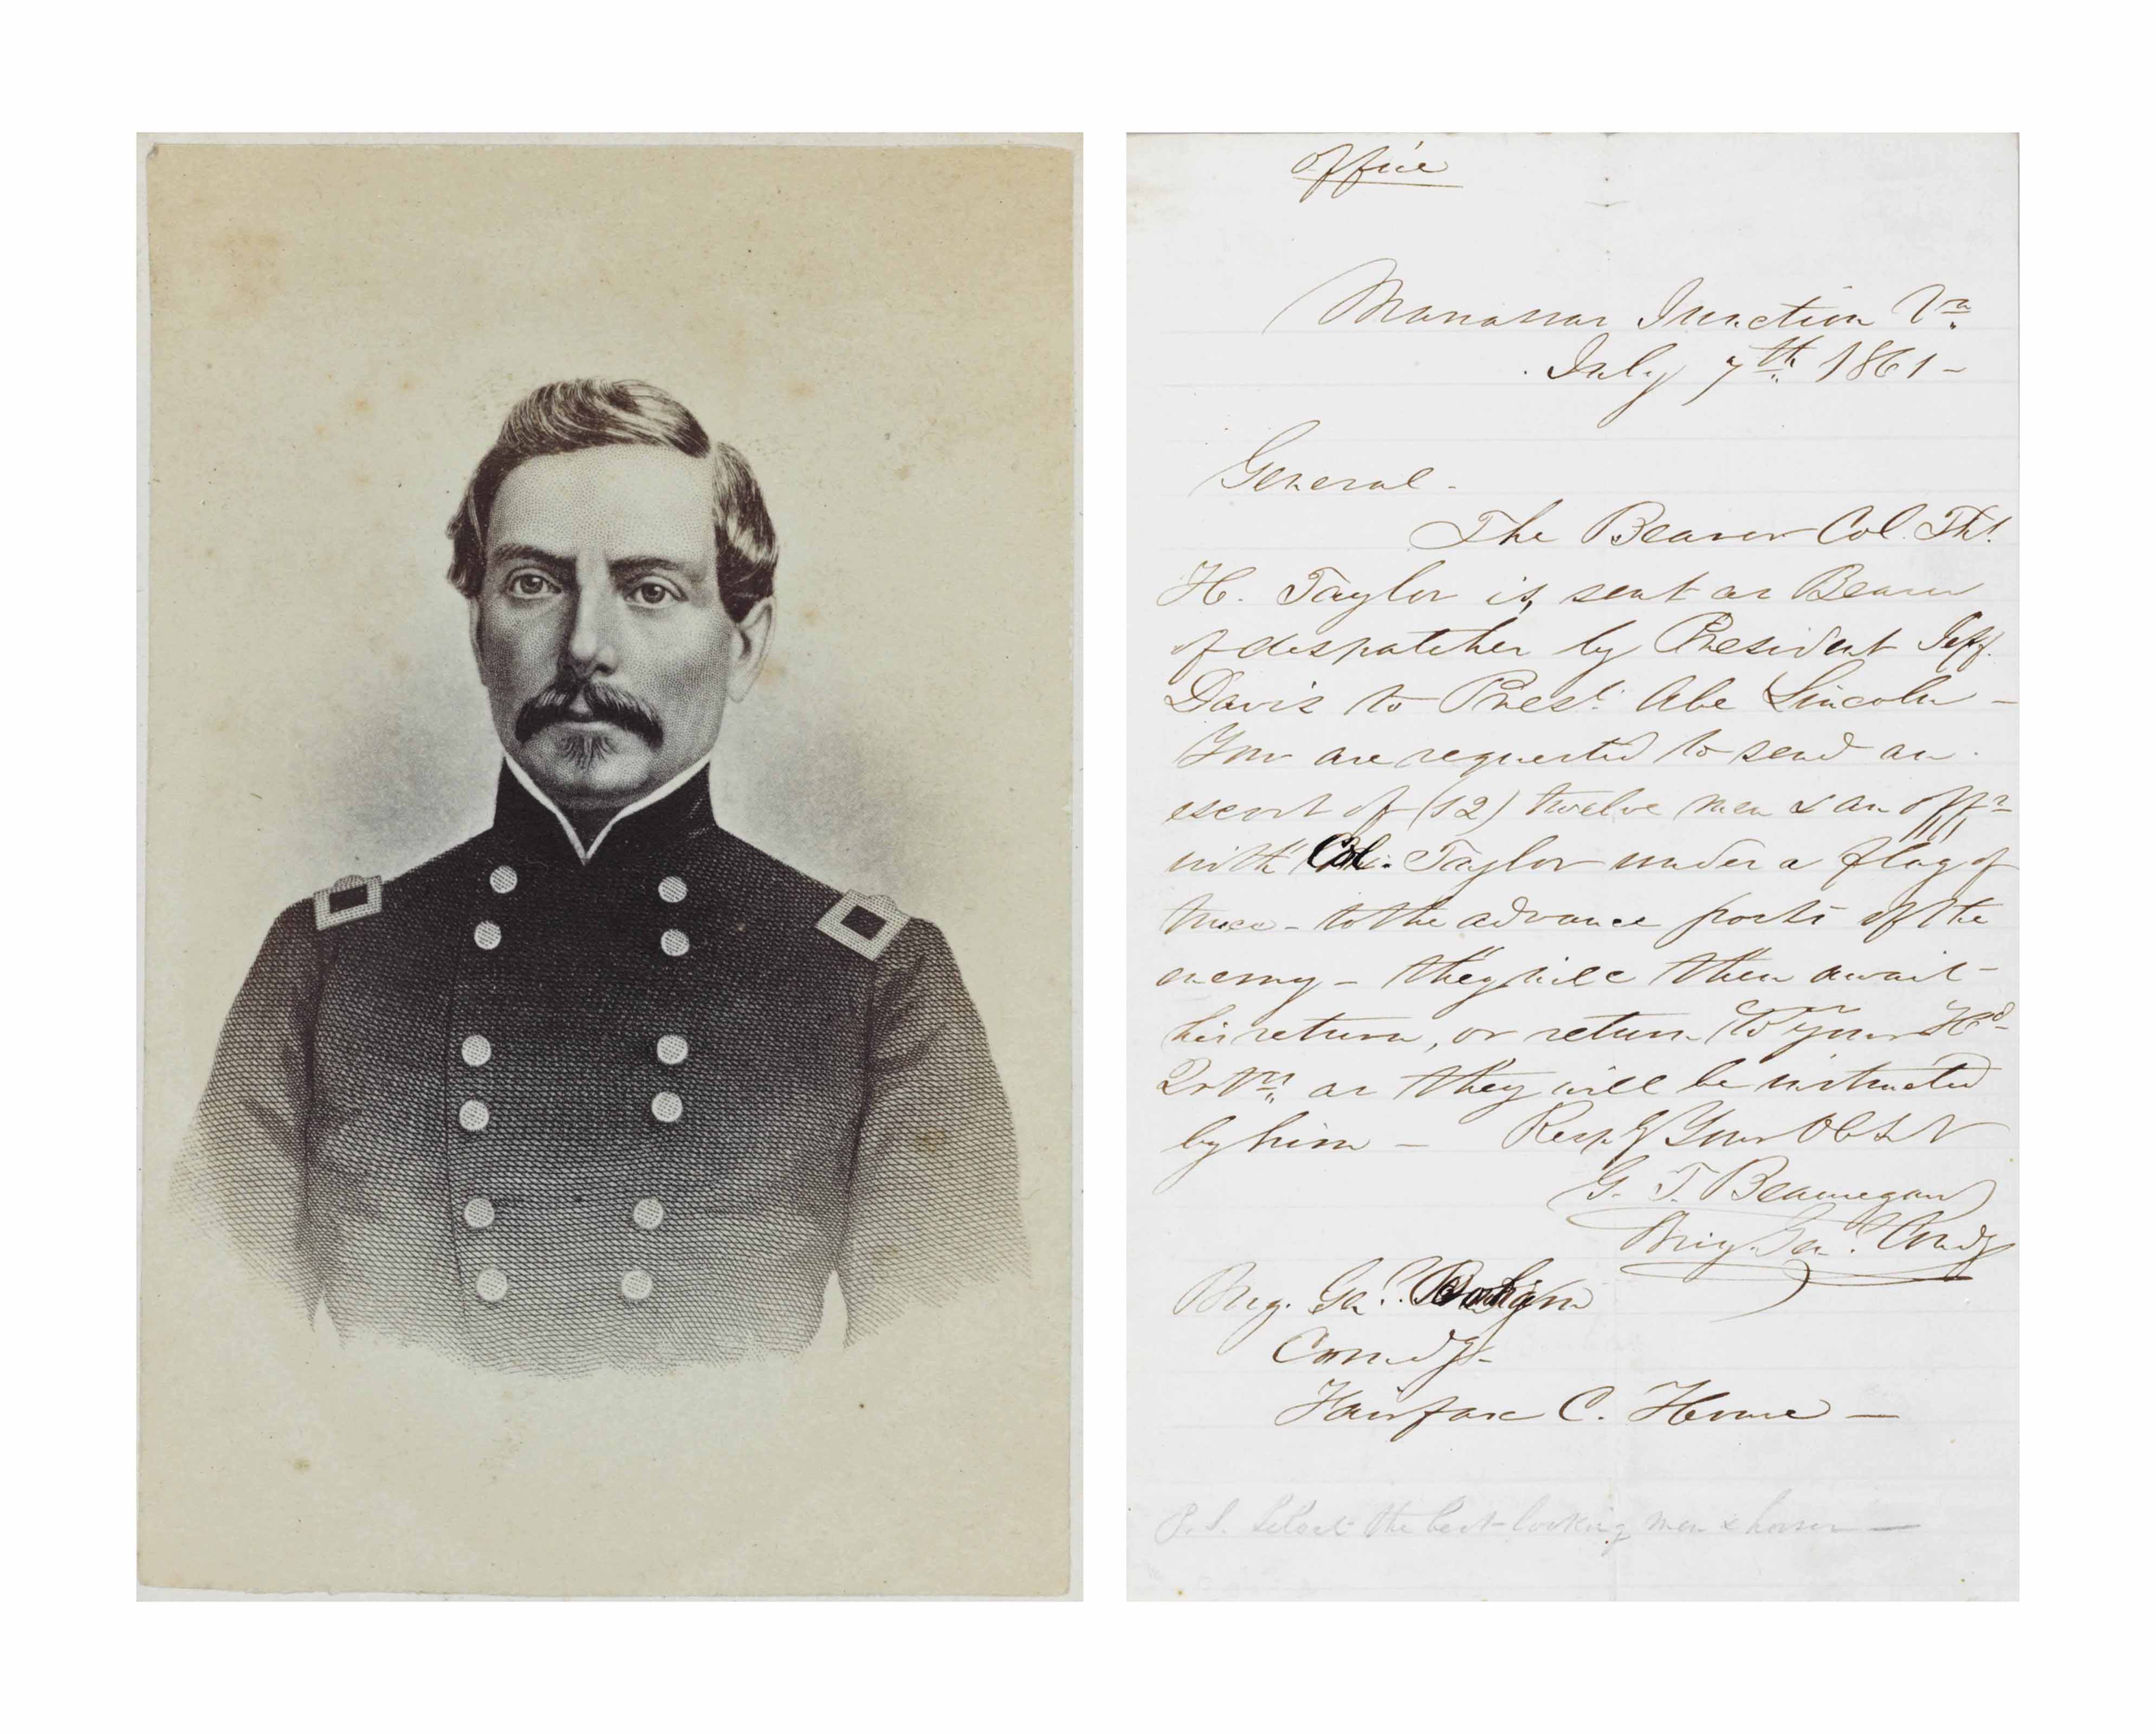 office
Manassas Junction Va
July 7th 1861 -
General -
The Bearer Col. Ths.
H. Taylor is sent as Bearer
of despatches by President Jeff.
Davis to Prest. Abe Lincoln -
You are requested to send an
escort of (12) twelve men & an offr
with Col. Taylor under a flag of
truce - to the advance posts of the
enemy - they will then await
his return, or return to your Hd
Qrtrs. as they will be instructed
by him - Resply Your Ob St
G. T. Beauregard
Brig. Genl. Comdg
Brig. Genl. Bonham
Comdg -
Fairfax C. House -
P.S. Select the best-looking men & horses -